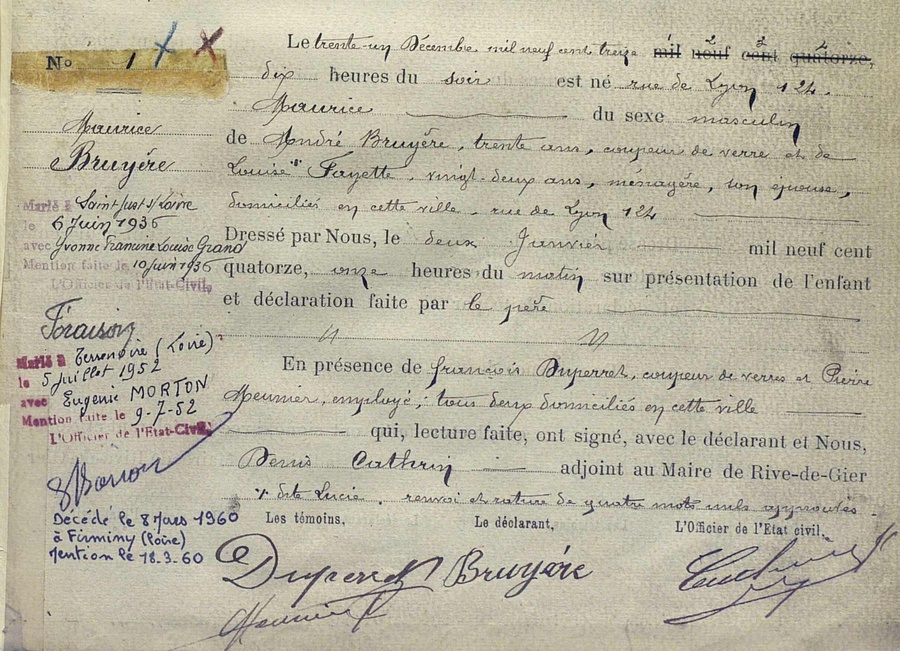 No 1
Maurice
Bruyère
Marié à Saint Just s/ Loire
le 6 Juin 1936
avec Yvonne Francine Louise Grand
Mention faite le 10 Juin 1936
L'Officier de l'État-Civil,
Marié à Terrenoire (Loire)
le 5 juillet 1952
avec Eugénie MORTON
Mention faite le 9-7-52
L'Officier de l'Etat-Civil,
Décédé le 8 Mars 1960
à Firminy (Loire)
Mention le 18.3.60
Le trente-un Décembre mil neuf cent treize mil neuf cent quatorze,
dix heures du soir est né rue de Lyon 124.
Maurice du sexe masculin
de André Bruyère, trente ans, coupeur de verre et de
Louise Fayette, vingt-deux ans, ménagère, son épouse,
domiciliés en cette ville, rue de Lyon 124
Dressé par Nous, le deux Janvier mil neuf cent
quatorze, onze heures du matin sur présentation de l'enfant
et déclaration faite par le père
En présence de françois Duperret, coupeur de verres et Pierre
Meunier, employé; tous deux domiciliés en cette ville
qui, lecture faite, ont signé, avec le déclarant et Nous,
Denis Cathrin adjoint au Maire de Rive-de-Gier
dite Lucie, renvoi et rature de quatre mots nuls approuvés.
Les témoins, Le déclarant, L'Officier de l'Etat civil,
Duperret Bruyére
Meunier